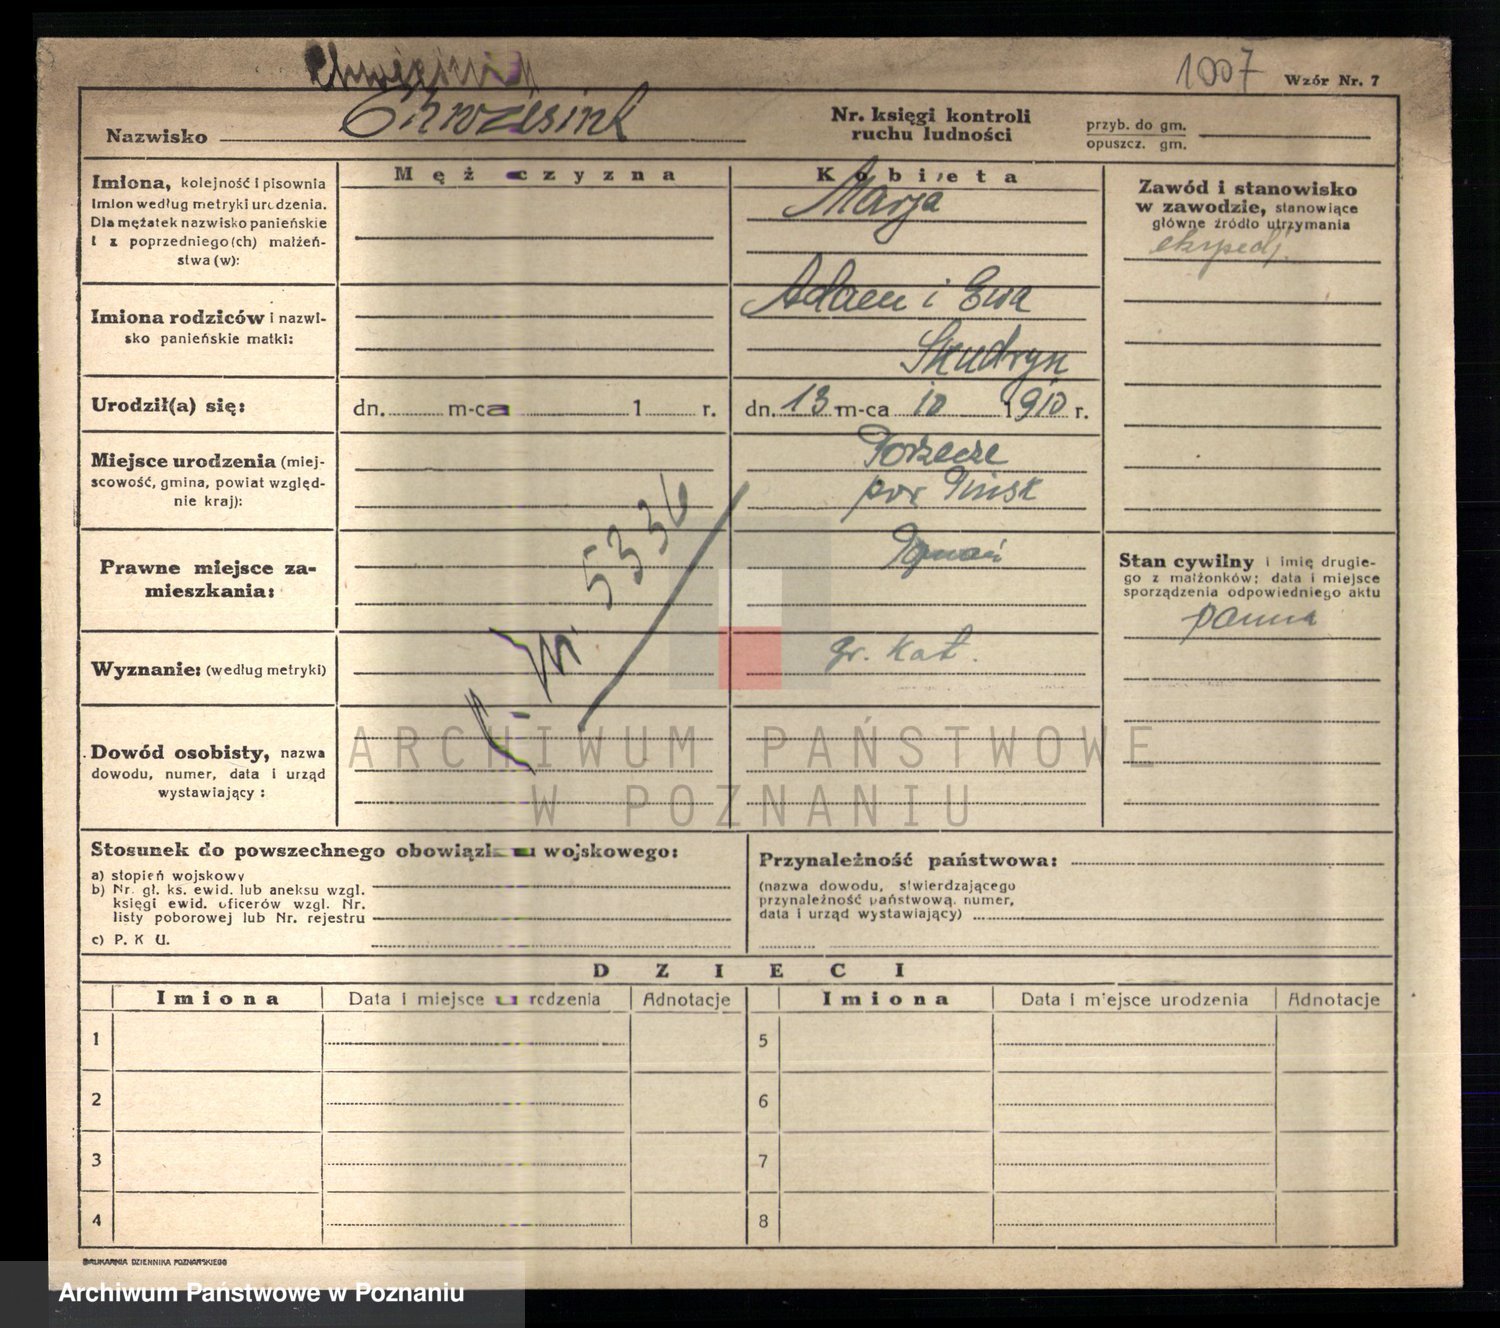 1007 Wzór Nr. 7
Nazwisko
Nr. księgi kontroli
ruchu ludności
przyb. do gm.
opuszcz. gm.
Imiona, kolejność i pisownia
imion według metryki urodzenia.
Dla mężatek nazwisko panieńskie
i z poprzedniego(ch) małżeń-
stwa (w):
Mężczyzna
Kobieta
Marja
Zawód i stanowisko
w zawodzie, stanowiące
główne źródło utrzymania
ekspedj.
Imiona rodziców i nazwi-
sko panieńskie matki:
Adam i Ewa
Skudryk
Urodził(a) się:
dn. m-ca 1 r.
dn. 13 m-ca 10 1910 r.
Miejsce urodzenia (miej-
scowość, gmina, powiat względ-
nie kraj):
Porzecze
pow Pińsk
5336
Prawne miejsce za-
mieszkania:
Poznań
Stan cywilny i imię drugie-
go z małżonków; data i miejsce
sporządzenia odpowiedniego aktu
panna
Wyznanie: (według metryki)
gr. kat.
Dowód osobisty, nazwa
dowodu, numer, data i urząd
wystawiający :
ARCHIWUM PAŃSTWOWE
W POZNANIU
Stosunek do powszechnego obowiązku wojskowego:
a) stopień wojskowy
b) Nr. gł. ks. ewid. lub aneksu wzgl.
księgi ewid. oficerów wzgl. Nr.
listy poborowej lub Nr. rejestru
c) P. K U.
Przynależność państwowa:
(nazwa dowodu, stwierdzającego
przynależność państwową, numer,
data i urząd wystawiający)
DZIECI
Imiona Data i miejsce urodzenia Adnotacje Imiona Data i miejsce urodzenia Adnotacje
1 5
2 6
3 7
4 8
DRUKARNIA DZIENNIKA POZNAŃSKIEGO
Archiwum Państwowe w Poznaniu